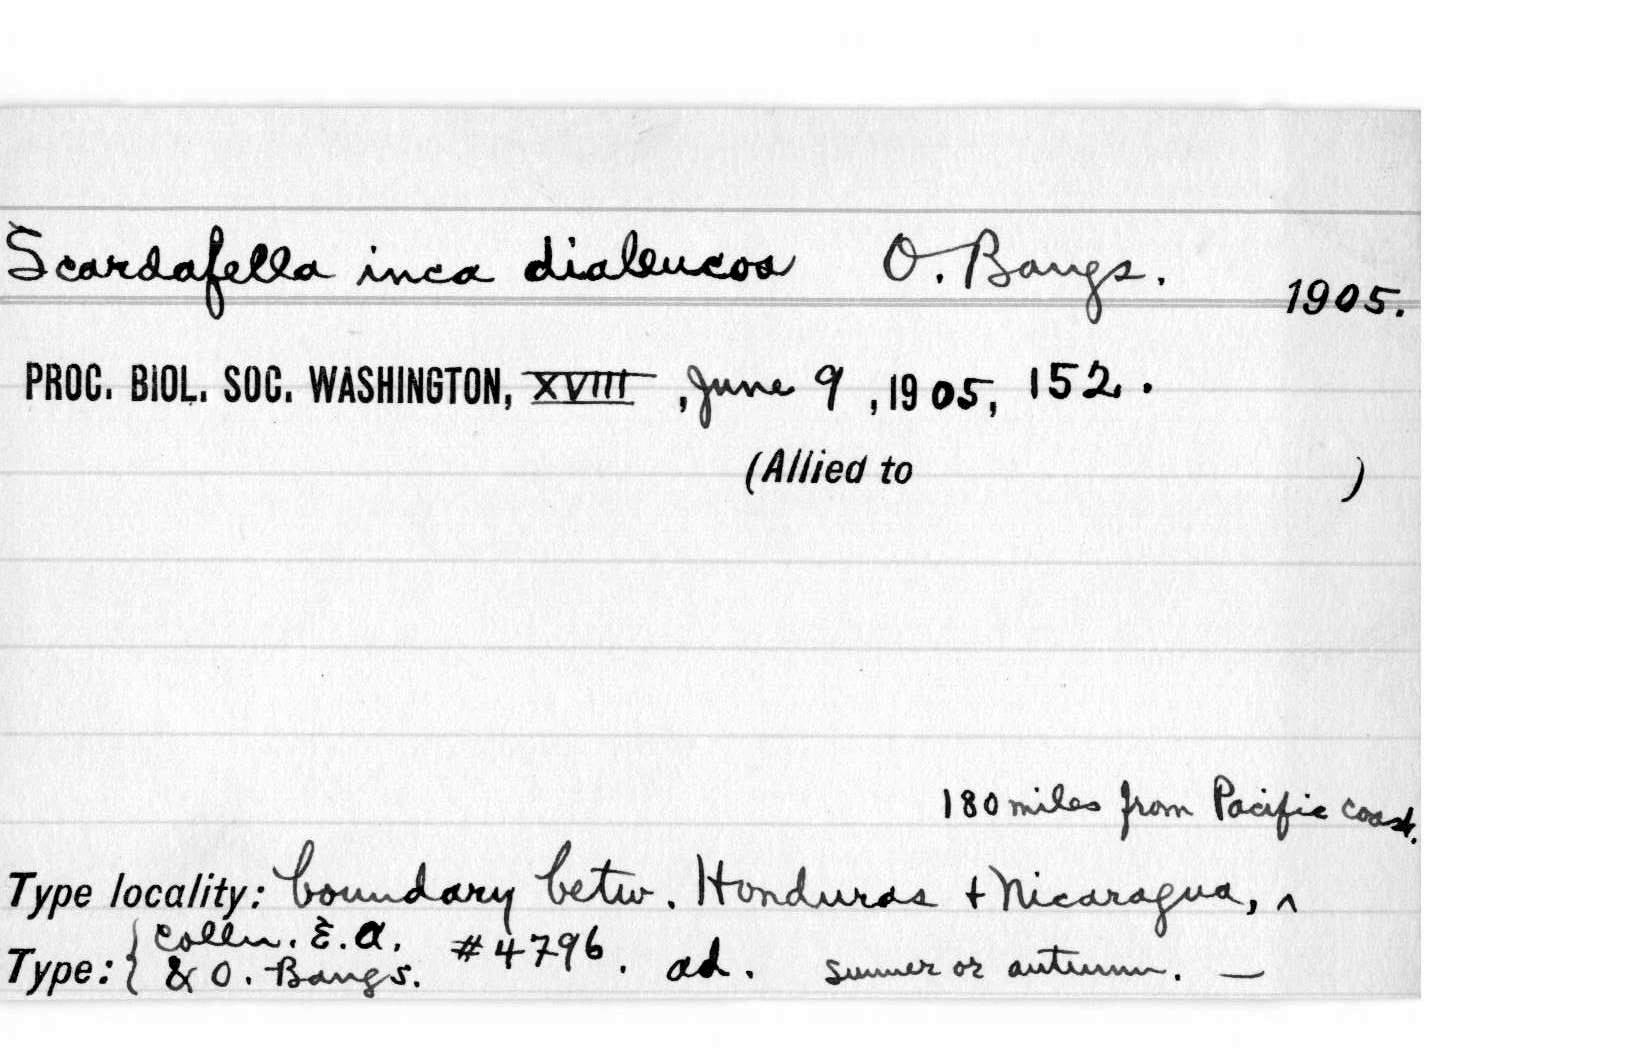 Scardafella inca dialeucos O. Bangs.
1905.
PROC. BIOL. SOC. WASHINGTON, XVIII, June 9, 1905, 152.
(Allied to )
180 miles from Pacific coast.
Type locality: boundary betw. Honduras + Nicaragua, ^
Type: { Colln. E.A. & O. Bangs. #4796. ad. summer or autumn. —